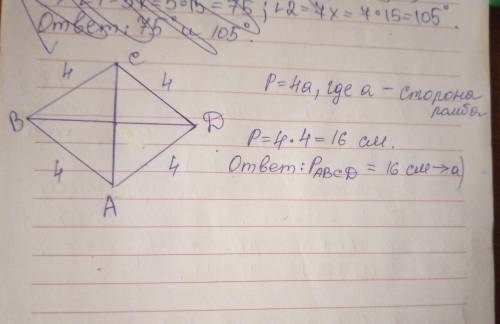 = 5·15 = 75°; ∠2 = 7x = 7·15 = 105°.
Ответ: 75° и 105°.
C
4 4
B D
4 4
A
P = 4a, где a - сторона
ромба
P = 4·4 = 16 см.
Ответ: PABCD = 16 см → а)